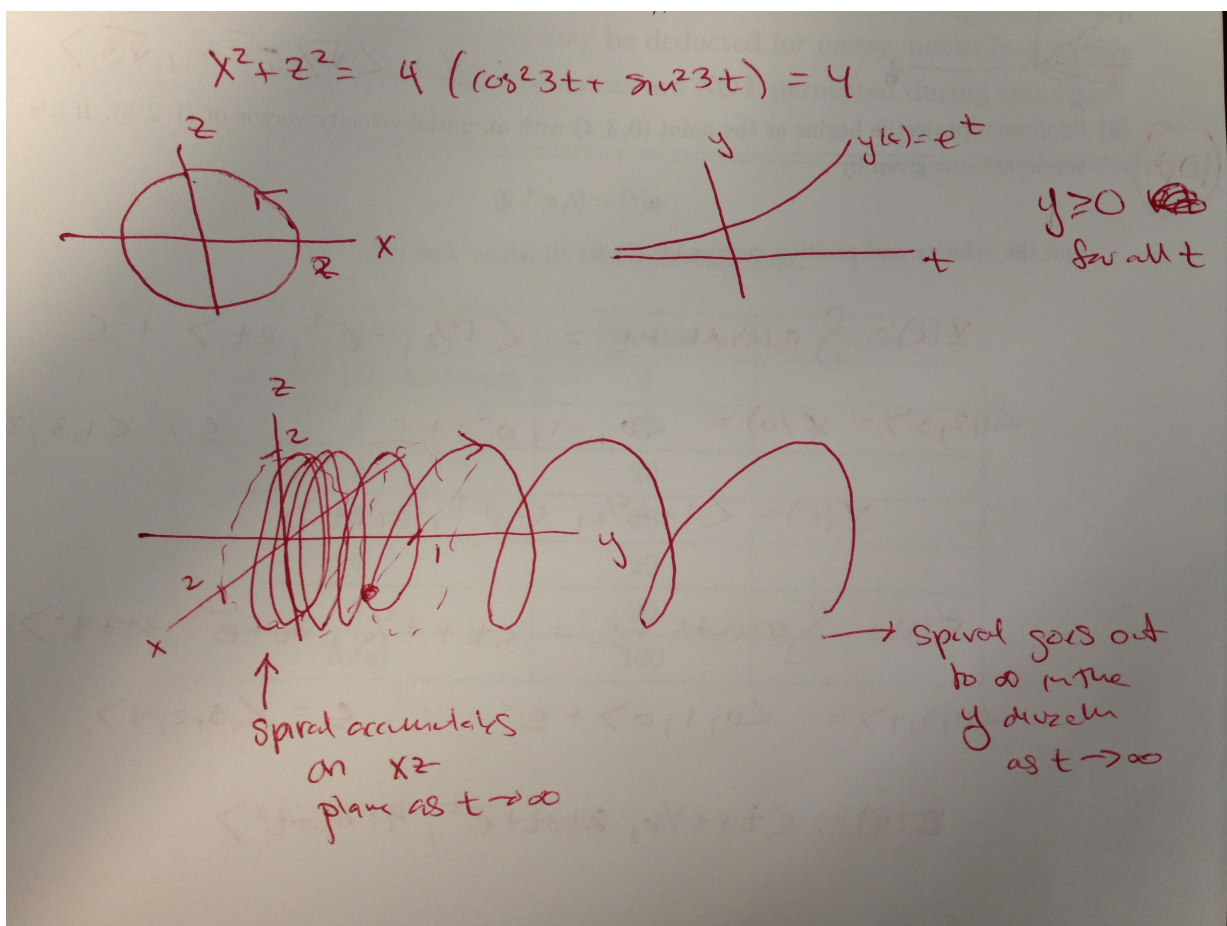 x² + z² = 4 (cos²3t + sin²3t) = 4
z
x
2
y
y(t) = eᵗ
t
y ≥ 0
for all t
z
2
2
x
1
y
spiral accumulates
on xz
plane as t → ∞
→ spiral goes out
to ∞ in the
y
as t → ∞